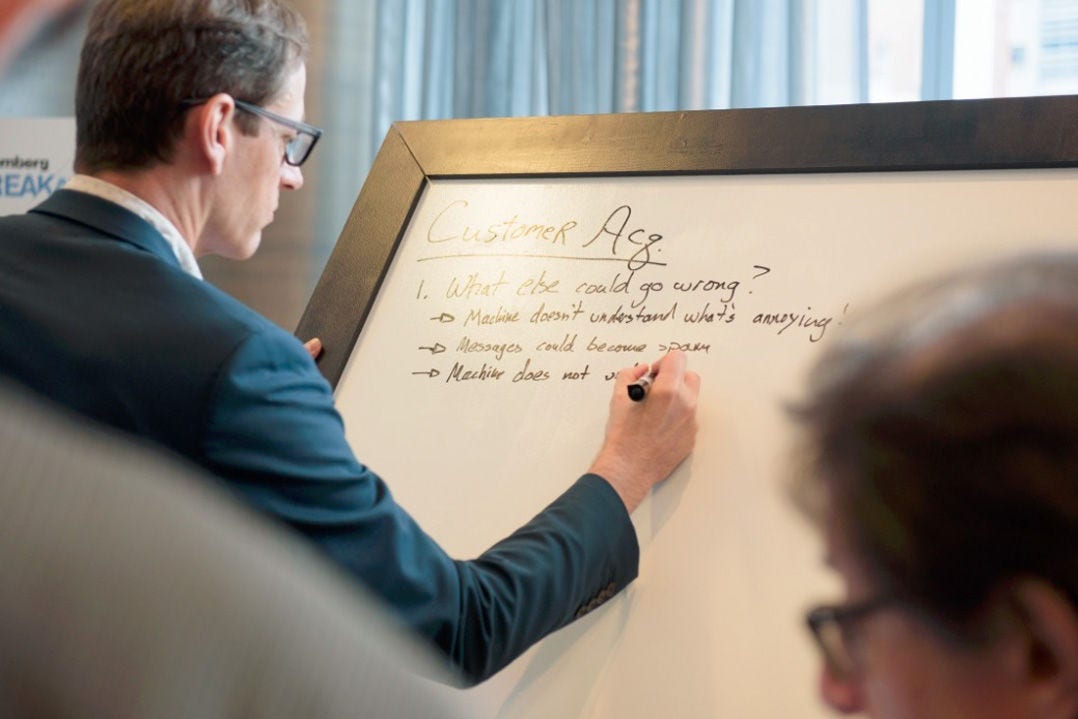 omberg
REAKA
Customer Acq.
1. What else could go wrong?
→ Machine doesn't understand what's annoying!
→ Messages could become spam
→ Machine does not